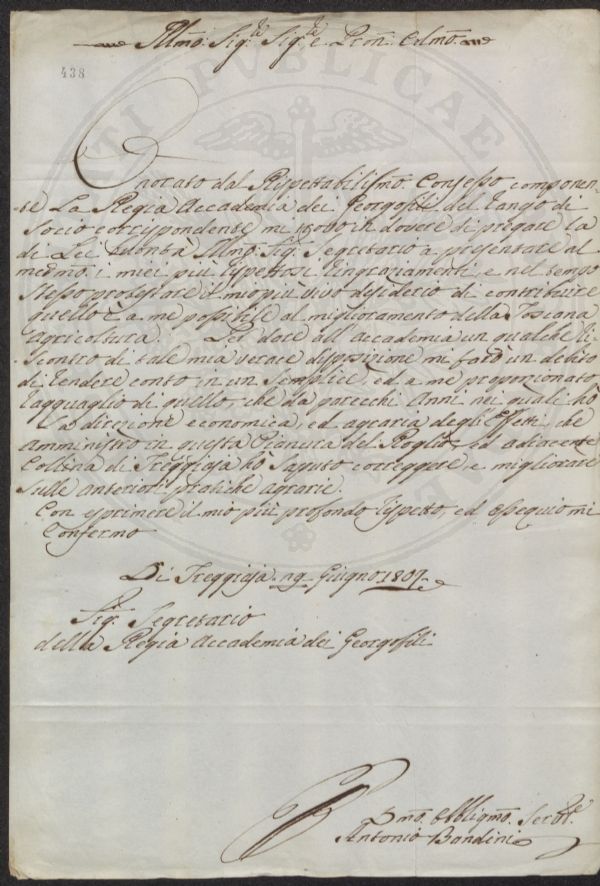 Illmo. Sig.re Sig.re e Pron. Colmo.
438
Onorato dal Rispettabilissmo. Consesso componen-
te La Regia Accademia dei Georgofili del rango di
Socio corrispondente mi trovo in dovere di pregare la
di Lei Bontà Illmo. Sig. Segretario a presentare al
medmo. i miei più rispettosi ringraziamenti e nel tempo
stesso protestare il mio più vivo desiderio di contribuire
quello è a me possibile al miglioramento della Toscana
Agricoltura. Per dare all'Accademia un qualche ri-
scontro di tale mia verace disposizione mi farò un debito
di rendere conto in un semplice, ed a me proporzionato
ragguaglio di quello, che da parecchi Anni nei quali hò
la direzione economica, ed agraria degli Effetti, che
amministro in questa Pianura del Roglio, ed adiacente
Collina di Treggiaja hò saputo correggere, e migliorare
sulle anteriori pratiche agrarie.
Con esprimere il mio più profondo rispetto, ed ossequio mi
Confermo
Di Treggiaja 29 Giugno 1807
Sig. Segretario
della Regia Accademia dei Georgofili
Dmo. Obbligmo. Ser.re
Antonio Bondini
PVBLICAE